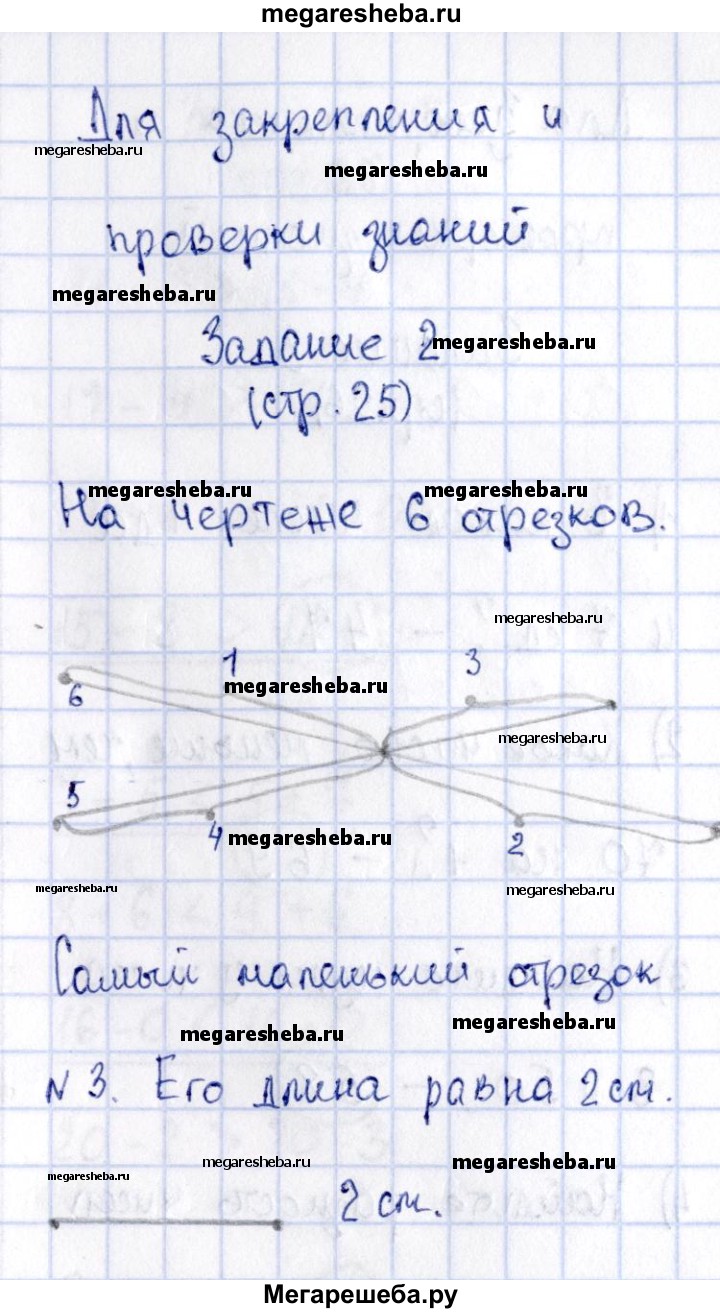 megaresheba.ru
Для закрепления и
megaresheba.ru
megaresheba.ru
проверки знаний
megaresheba.ru
Задание 2
megaresheba.ru
(стр. 25)
megaresheba.ru
megaresheba.ru
На чертеже 6 отрезков.
megaresheba.ru
1
3
megaresheba.ru
6
megaresheba.ru
5
4
megaresheba.ru
2
megaresheba.ru
megaresheba.ru
Самый маленький отрезок
megaresheba.ru
megaresheba.ru
N 3. Его длина равна 2 см.
megaresheba.ru
megaresheba.ru
megaresheba.ru
2 см.
Мегарешеба.ру